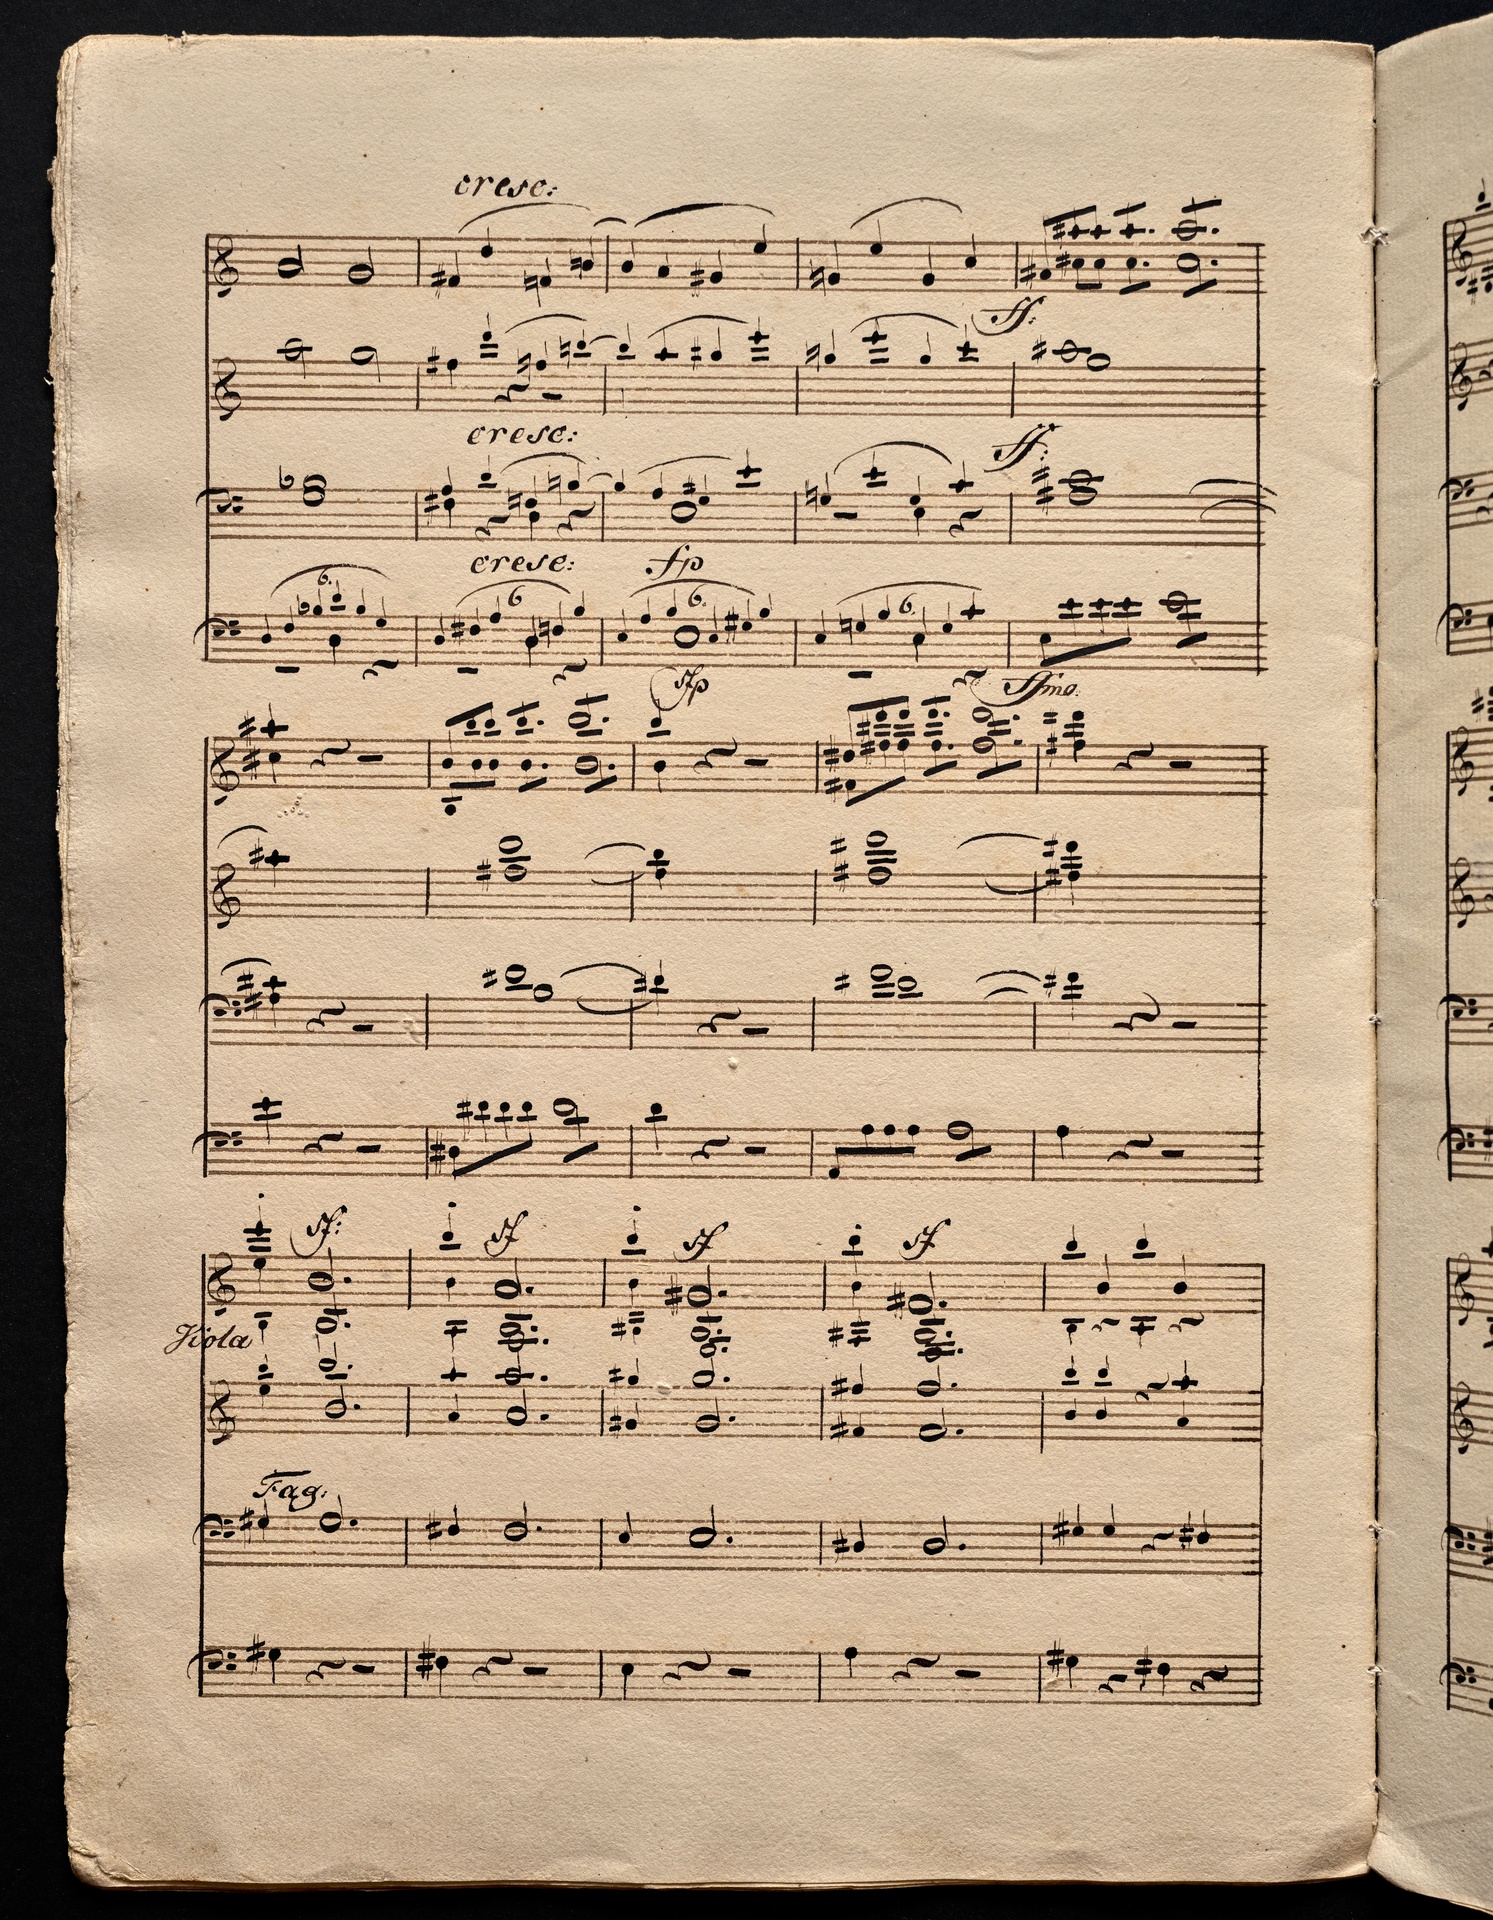 cresc:
ff:
cresc:
ff:
cresc: fp
6.
6 6. 6.
sfp ffmo:
sf: sf sf sf
Viola
Fag: